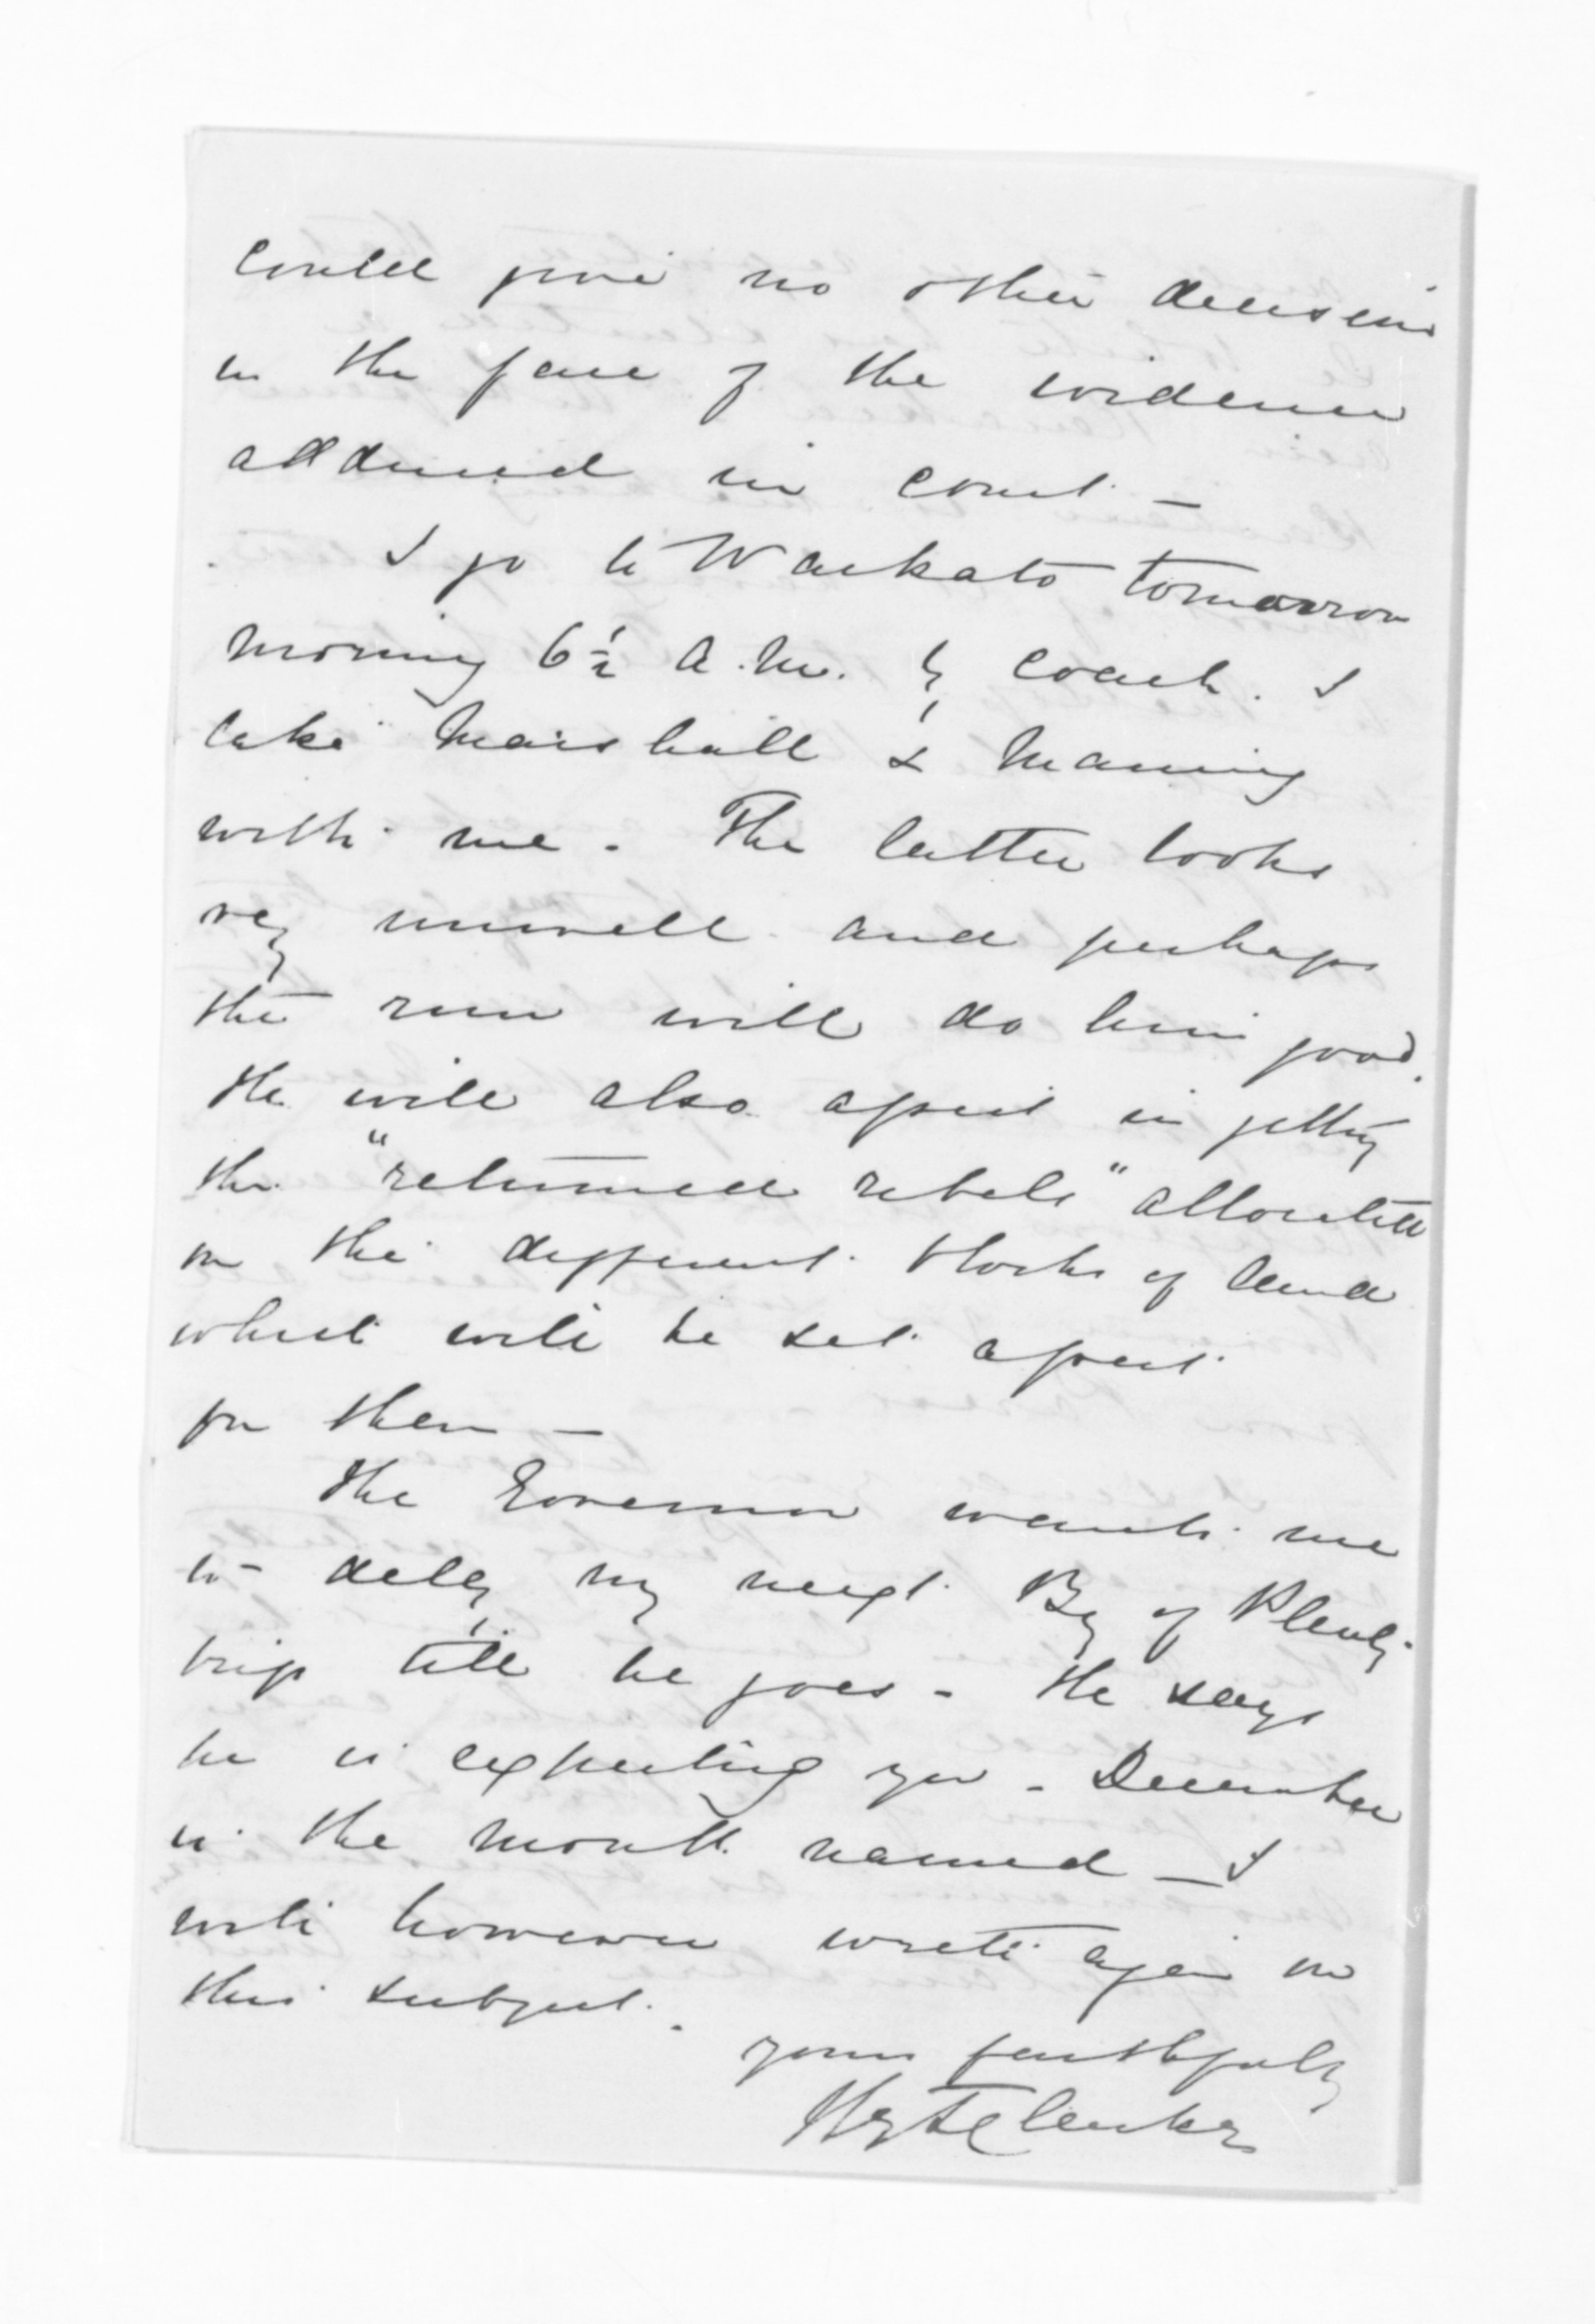 could give no other decision
in the face of the evidence
adduced in court —
I go to Waikato tomorrow
morning 6½ a.m. by coach. I
take Marshall & Manning
with me. The latter looks
very unwell and perhaps
the run will do him good.
He will also assist in getting
the "returned rebels" allocated
on the different blocks of land
which will be set apart
for them —
The Governor wants me
to delay my next Bay of Plenty
trip till he goes - He says
he is expecting you - December
is the month named — I
will however write again on
this subject.
yours faithfully
Hy T Clarke